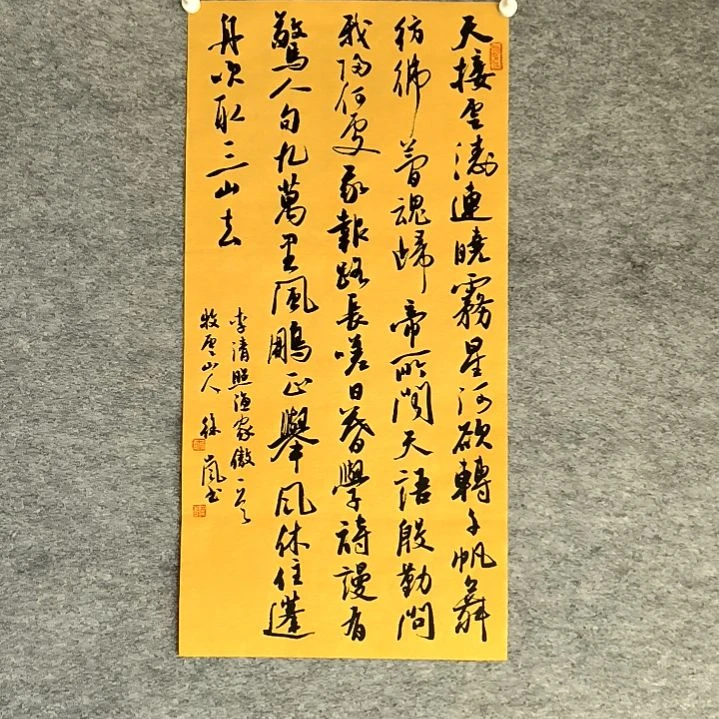 天接雲濤連曉霧星河欲轉千帆舞
彷彿夢魂歸帝所聞天語殷勤問
我歸何處我報路長嗟日暮學詩謾有
驚人句九萬里風鵬正舉風休住蓬
舟吹取三山去
李清照漁家傲一首
牧山人徐嵐書